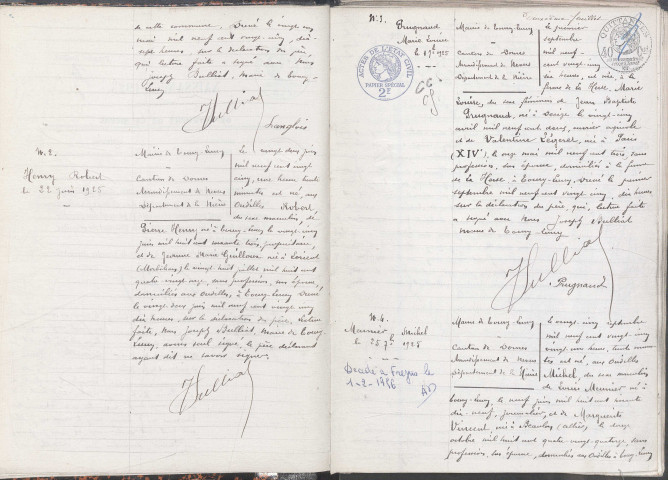 de cette commune. Dressé le vingt cinq
mai mil neuf cent vingt cinq, dix
sept heures, sur la déclaration du père
qui, lecture faite a signé avec Nous
Joseph Bulliat, Maire de Toury-
Lurcy
Bulliat
Langlois
N. 2.
Henry Robert
le 22 juin 1925
Mairie de Toury-Lurcy
Canton de Dornes
Arrondissement de Nevers
Département de la Nièvre
le vingt deux juin
mil neuf cent vingt
cinq, une heure trente
minutes est né aux
Oudilles Robert,
du sexe masculin, de
Pierre Henry né à Toury-Lurcy le vingt cinq
juin mil huit cent quatre vingt trois, propriétaire,
et de Jeanne Marie Guilloux née à Lorient
(Morbihan) le vingt huit juillet mil huit cent
quatre vingt onze, sans profession, son épouse,
domiciliés aux Oudilles, à Toury-Lurcy. Dressé
le vingt deux juin mil neuf cent vingt cinq
dix heures, sur la déclaration du père. Lecture
faite, Nous Joseph Bulliat, Maire de Toury
Lurcy, avons seul signé, le père déclarant
ayant dit ne savoir signer.
Bulliat
Deuxième feuillet
N. 3.
Preugnaud
Marie Louise
le 1er 7bre 1925
ACTES DE L'ETAT CIVIL
PAPIER SPECIAL
2F
QUITTANCES
Mairie de Toury-Lurcy
Canton de Dornes
Arrondissement de Nevers
Département de la Nièvre
le premier
septembre
mil neuf
cent vingt cinq
dix heures, est née, à la
ferme de la Hove, Marie
Louise, du sexe féminin de Jean Baptiste
Preugnaud, né à Decize le vingt cinq
avril mil neuf cent deux, ouvrier agricole
et de Valentine né à Paris
(XIV), le onze mai mil neuf cent trois, sans
profession, son épouse, domiciliés à la ferme
de la Hove à Toury-Lurcy. Dressé le premier
septembre mil neuf cent vingt cinq, dix heures
sur la déclaration du père, qui, lecture faite
a signé avec Nous Joseph Bulliat
Maire de Toury-Lurcy
Bulliat
Preugnaud
N. 4.
Meunier Michel
le 25 7bre 1925
Décédé à Fréjus le
1-2-1986
Mairie de Toury-Lurcy
Canton de Dornes
Arrondissement de Nevers
Département de la Nièvre
le vingt cinq septembre
mil neuf cent vingt cinq
minutes est né, aux Oudilles
Michel, du sexe masculin
de Louis Meunier né à
Toury-Lurcy, le neuf juin mil huit cent
dix-neuf, journalier, et de Marguerite
Vincent, née à Beaulon (Allier) le
octobre mil huit cent quatre-vingt-quatorze, sans
profession, son épouse, domiciliés aux Oudilles à Toury-Lurcy